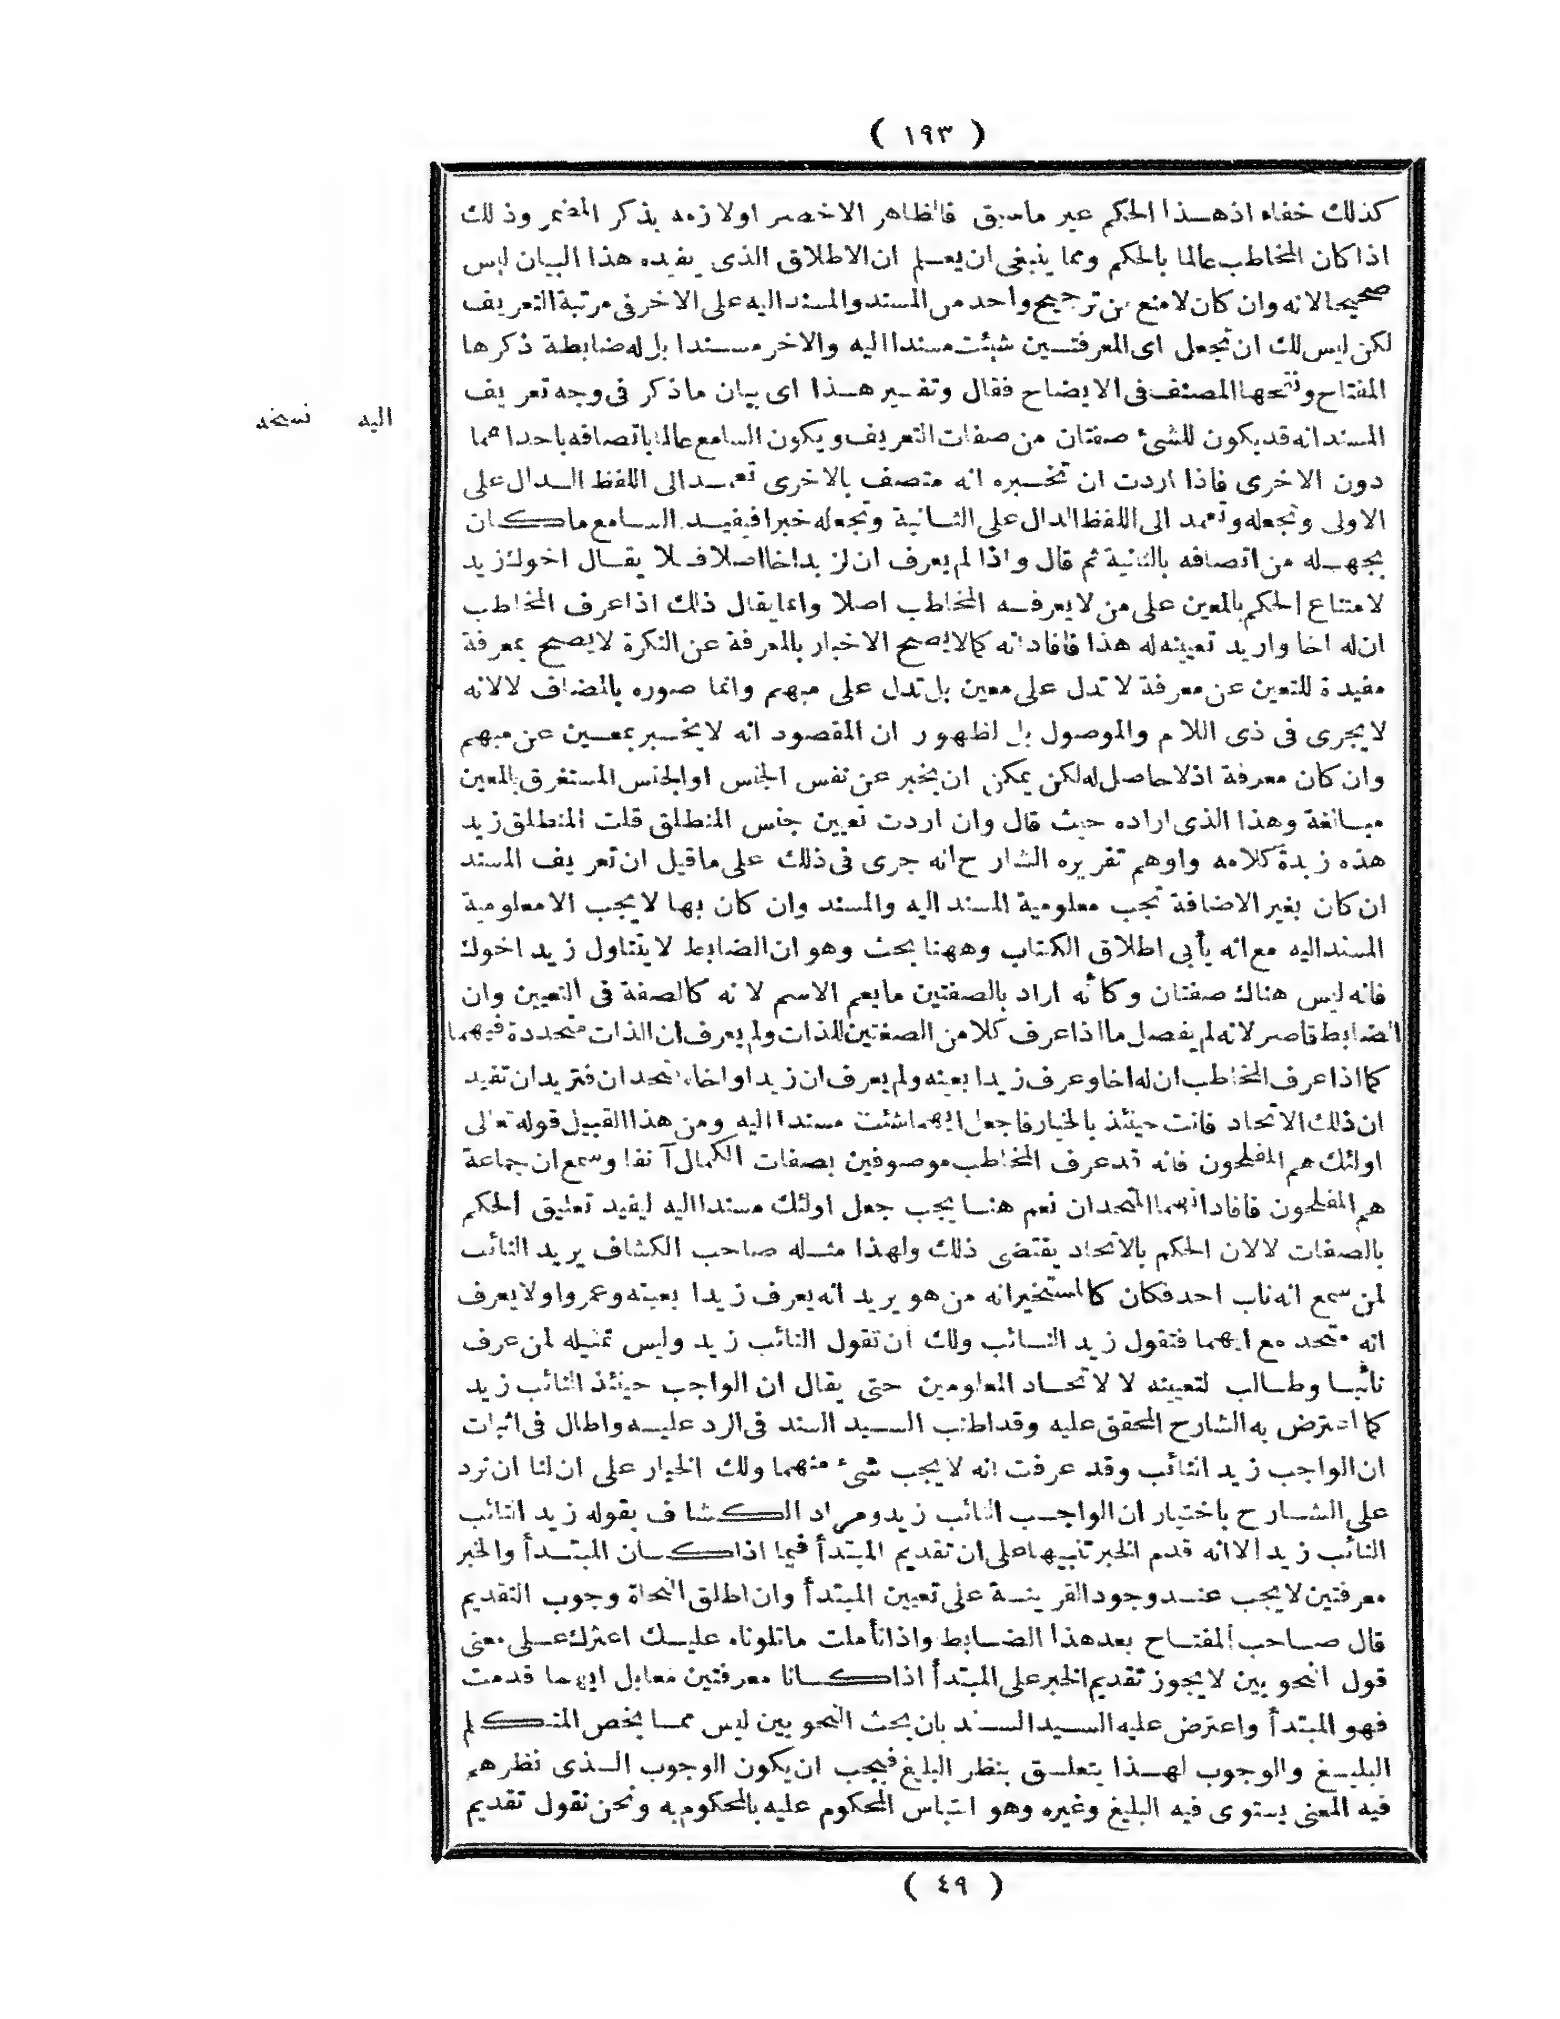 ( ١٩٣ )
كذلك خفاء اذ هذا الحكم غير ما سبق فالظاهر الاخصر او لازمه بذكر المضمر وذلك
اذا كان المخاطب عالما بالحكم ومما ينبغى ان يعلم ان الاطلاق الذى يفيده هذا البيان ليس
صحيحا لانه وان كان لا منع من ترجيح واحد من المسند والمسند اليه على الاخر فى مرتبة التعريف
لكن ليس لك ان تجعل اى المعرفتين شئت مسندا اليه والاخر مسندا بل له ضابطة ذكرها
المفتاح ونقحها المصنف فى الايضاح فقال وتفسير هذا اى بيان ما ذكر فى وجه تعريف
اليه نسخه
المسند انه قد يكون للشئ صفتان من صفات التعريف ويكون السامع عالما باتصافه باحداهما
دون الاخرى فاذا اردت ان تخبره انه متصف بالاخرى تعمد الى اللفظ الدال على
الاولى وتجعله وتعمد الى اللفظ الدال على الثانية وتجعله خبرا فيفيد السامع ما كان
يجهله من اتصافه بالثانية ثم قال واذا لم يعرف ان لزيد اخا اصلا فلا يقال اخوك زيد
لامتناع الحكم بالمعين على من لا يعرفه المخاطب اصلا وانما يقال ذلك اذا عرف المخاطب
ان له اخا واريد تعيينه له هذا فافاد انه كما لا يصح الاخبار بالمعرفة عن النكرة لا يصح بمعرفة
مفيدة للتعين عن معرفة لا تدل على معين بل تدل على مبهم وانما صوره بالمضاف لا لانه
لا يجرى فى ذى اللام والموصول بل لظهور ان المقصود انه لا يخبر بمعين عن مبهم
وان كان معرفة اذ لا حاصل له لكن يمكن ان يخبر عن نفس الجنس او الجنس المستغرق بالمعين
مبالغة وهذا الذى اراده حيث قال وان اردت تعيين جنس المنطلق قلت المنطلق زيد
هذه زبدة كلامه واوهم تقريره الشارح انه جرى فى ذلك على ما قيل ان تعريف المسند
ان كان بغير الاضافة تجب معلومية المسند اليه والمسند وان كان بها لا يجب الا معلومية
المسند اليه مع انه يأبى اطلاق الكتاب وههنا بحث وهو ان الضابط لا يتناول زيد اخوك
فانه ليس هناك صفتان وكأنه اراد بالصفتين ما يعم الاسم لانه كالصفة فى التعيين وان
الضابط قاصر لانه لم يفصل ما اذا عرف كلا من الصفتين للذات ولم يعرف ان الذات متحددة فيهما
كما اذا عرف المخاطب ان له اخا وعرف زيدا بعينه ولم يعرف ان زيدا واخاه متحدان فتريد ان تفيد
ان ذلك الاتحاد فانت حينئذ بالخيار فاجعل ايهما شئت مسندا اليه ومن هذا القبيل قوله تعالى
اولئك هم المفلحون فانه قد عرف المخاطب موصوفين بصفات الكمال آنفا وسمع ان جماعة
هم المفلحون فافاد انهما المتحدان نعم هنا يجب جعل اولئك مسندا اليه ليفيد تعليق الحكم
بالصفات لا لان الحكم بالاتحاد يقتضى ذلك ولهذا مثله صاحب الكشاف بزيد التائب
لمن سمع انه تاب احد فكان كالمستخبر انه من هو يريد انه يعرف زيدا بعينه وعمروا ولا يعرف
انه متحد مع ايهما فتقول زيد التائب ولك ان تقول التائب زيد وليس تمثيله لمن عرف
تائبا وطالب لتعيينه لا لاتحاد المعلومين حتى يقال ان الواجب حينئذ التائب زيد
كما اعترض به الشارح المحقق عليه وقد اطنب السيد السند فى الرد عليه واطال فى اثبات
ان الواجب زيد التائب وقد عرفت انه لا يجب شئ منهما ولك الخيار على ان لنا ان نرد
على الشارح باختيار ان الواجب التائب زيد ومراد الكشاف بقوله زيد التائب
التائب زيد الا انه قدم الخبر تنبيها على ان تقديم المبتدأ فيما اذا كان المبتدأ والخبر
معرفتين لا يجب عند وجود القرينة على تعيين المبتدأ وان اطلق النحاة وجوب التقديم
قال صاحب المفتاح بعد هذا الضابط واذا تأملت ما تلوناه عليك اعثرك على معنى
قول النحويين لا يجوز تقديم الخبر على المبتدأ اذا كانا معرفتين معا بل ايهما قدمت
فهو المبتدأ واعترض عليه السيد السند بان بحث النحويين ليس مما يخص المتكلم
البليغ والوجوب لهذا يتعلق بنظر البليغ فيجب ان يكون الوجوب الذى نظرهم
فيه المعنى يستوى فيه البليغ وغيره وهو التباس المحكوم عليه بالمحكوم به ونحن نقول تقديم
( ٤٩ )